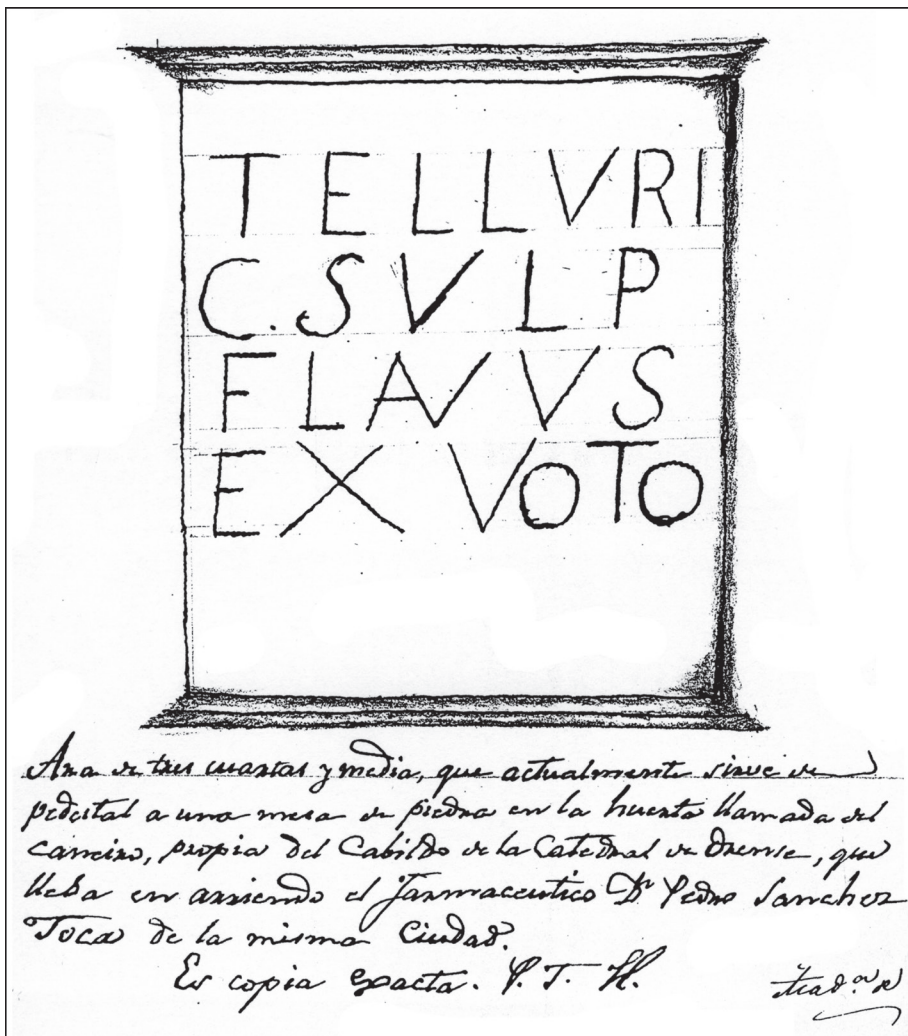 TELLVRI
C. SVLP
FLAVVS
EX VOTO
Ara de tres cuartas y media, que actualmente sirve de
pedestal a una mesa de piedra en la huerta llamada del
carreiro, propia del Cabildo de la Catedral de Orense, que
lleba en arriendo el Farmaceutico Dn Pedro Sanchez
Toca de la misma Ciudad.
Es copia exacta. P. T. H.